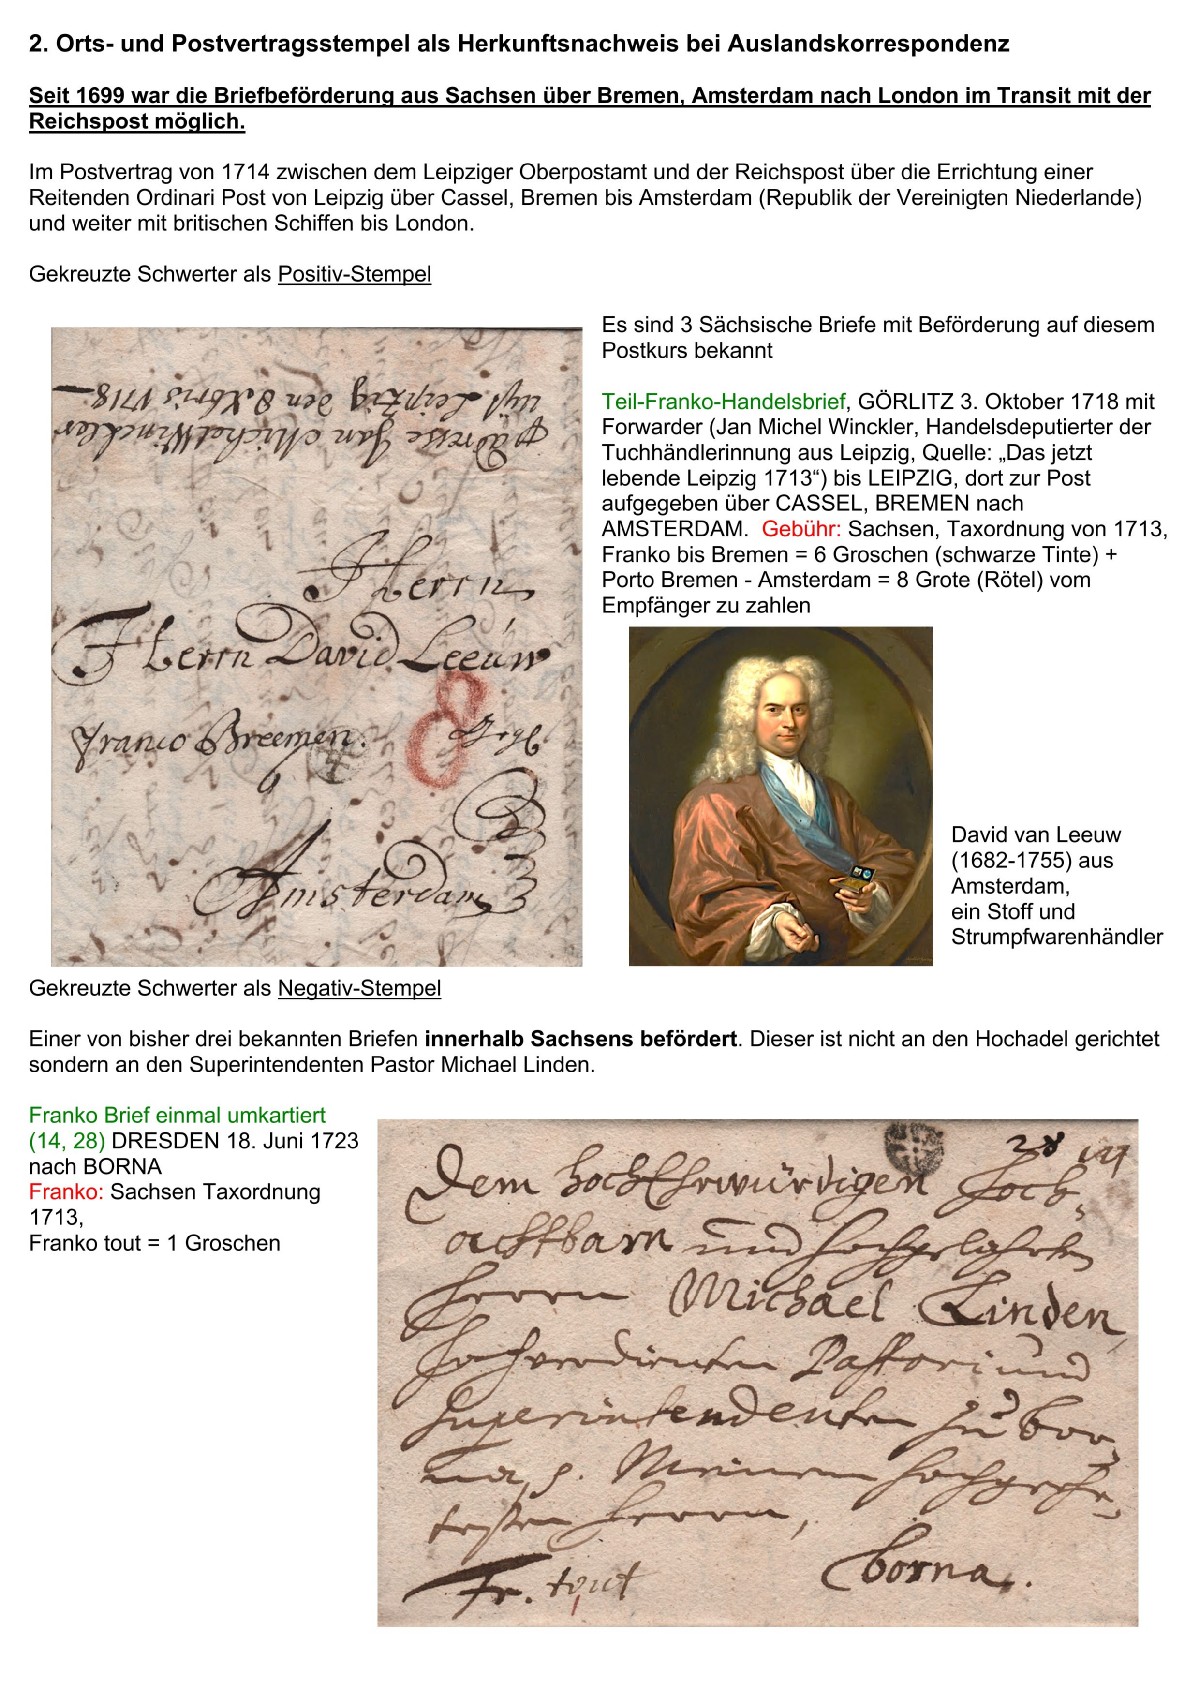 2. Orts- und Postvertragsstempel als Herkunftsnachweis bei Auslandskorrespondenz
Seit 1699 war die Briefbeförderung aus Sachsen über Bremen, Amsterdam nach London im Transit mit der
Reichspost möglich.
Im Postvertrag von 1714 zwischen dem Leipziger Oberpostamt und der Reichspost über die Errichtung einer
Reitenden Ordinari Post von Leipzig über Cassel, Bremen bis Amsterdam (Republik der Vereinigten Niederlande)
und weiter mit britischen Schiffen bis London.
Gekreuzte Schwerter als Positiv-Stempel
Es sind 3 Sächsische Briefe mit Beförderung auf diesem
Postkurs bekannt
Teil-Franko-Handelsbrief, GÖRLITZ 3. Oktober 1718 mit
Forwarder (Jan Michel Winckler, Handelsdeputierter der
Tuchhändlerinnung aus Leipzig, Quelle: „Das jetzt
lebende Leipzig 1713“) bis LEIPZIG, dort zur Post
aufgegeben über CASSEL, BREMEN nach
AMSTERDAM. Gebühr: Sachsen, Taxordnung von 1713,
Franko bis Bremen = 6 Groschen (schwarze Tinte) +
Porto Bremen - Amsterdam = 8 Grote (Rötel) vom
Empfänger zu zahlen
adresse Jan Michel Winckler
Leipzig den 8 Xbris 1718
Herrn
Herrn David Leeuw
Franco Breemen.
8
6
Amsterdam
David van Leeuw
(1682-1755) aus
Amsterdam,
ein Stoff und
Strumpfwarenhändler
Gekreuzte Schwerter als Negativ-Stempel
Einer von bisher drei bekannten Briefen innerhalb Sachsens befördert. Dieser ist nicht an den Hochadel gerichtet
sondern an den Superintendenten Pastor Michael Linden.
Franko Brief einmal umkartiert
(14, 28) DRESDEN 18. Juni 1723
nach BORNA
Franko: Sachsen Taxordnung
1713,
Franko tout = 1 Groschen
28 14
Dem hochEhrwürdigen Hoch-
achtbarn und hochgelahrten
Herrn Michael Linden,
hochverdienten Pastori und
Superintendenten zu Bor-
na, p. Meinem hochgeehr-
testen Herrn,
Fr. tout
borna.